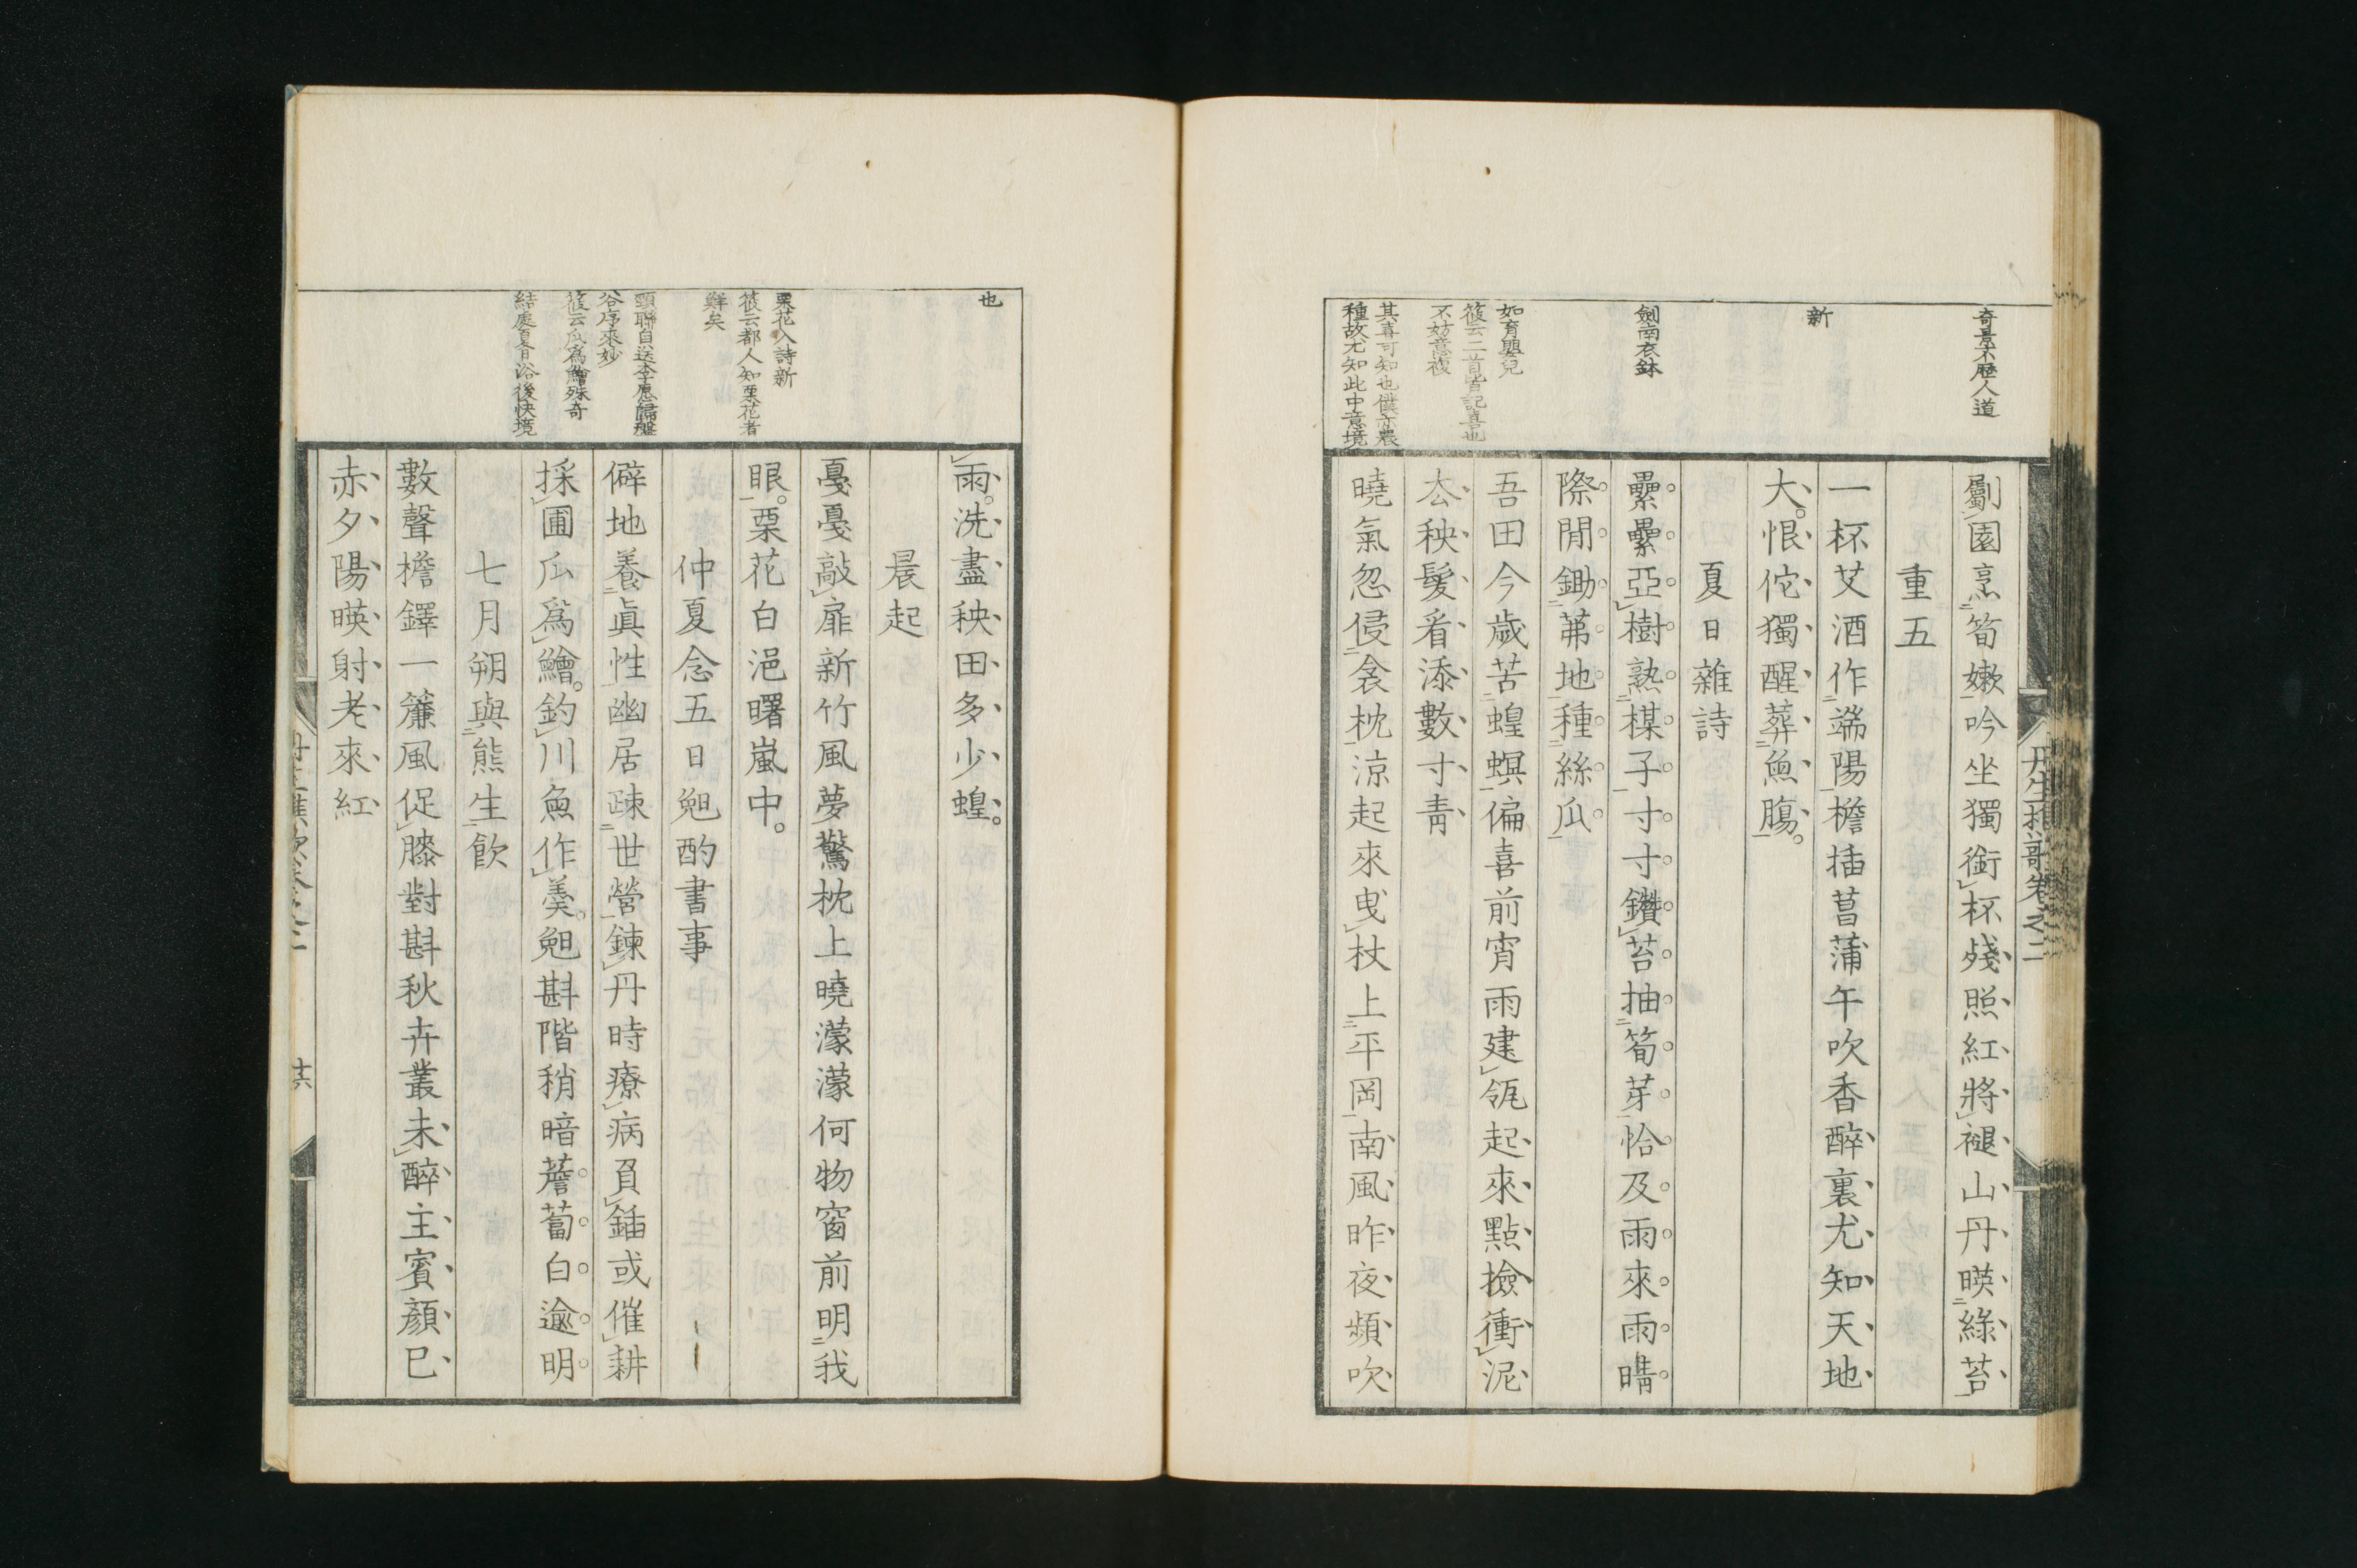 奇景不歷人道
新
劍南衣鉢
如育嬰兒
筱云二首皆記喜也
不妨意複
其喜可知也僕亦農
種故尤知此中意境
丹生樵歌卷之二
劚園烹筍嫩吟坐獨銜杯殘照紅將褪山丹暎綠苔
重五
一杯艾酒作端陽檐插菖蒲午吹香醉裏尤知天地
大恨佗獨醒葬魚腹
夏日雜詩
纍纍亞樹熟楳子寸寸鑽苔抽筍芽恰及雨來雨晴
際閒鋤茀地種絲瓜
吾田今歲苦蝗螟偏喜前宵雨建瓴起來點撿衝泥
厺秧髮看添數寸青
曉氣忽侵衾枕涼起來曳杖上平岡南風昨夜頻吹
也
栗花入詩新
筱云都人知栗花者
鮮矣
頸聯自送李愿歸盤
谷序來妙
筱云瓜爲鱠殊奇
結處夏月浴後快境
雨洗盡秧田多少蝗
晨起
戞戞敲扉新竹風夢驚枕上曉濛濛何物窗前明我
眼栗花白浥曙嵐中
仲夏念五日夗酌書事
僻地養眞性幽居疎世營鍊丹時療病負鍤或催耕
採圃瓜爲鱠釣川魚作羹夗斟階稍暗薝蔔白逾明
七月朔與熊生飮
數聲檐鐸一簾風促膝對斟秋卉叢未醉主賓顏已
赤夕陽暎射老來紅
丹生樵歌卷之二
十六